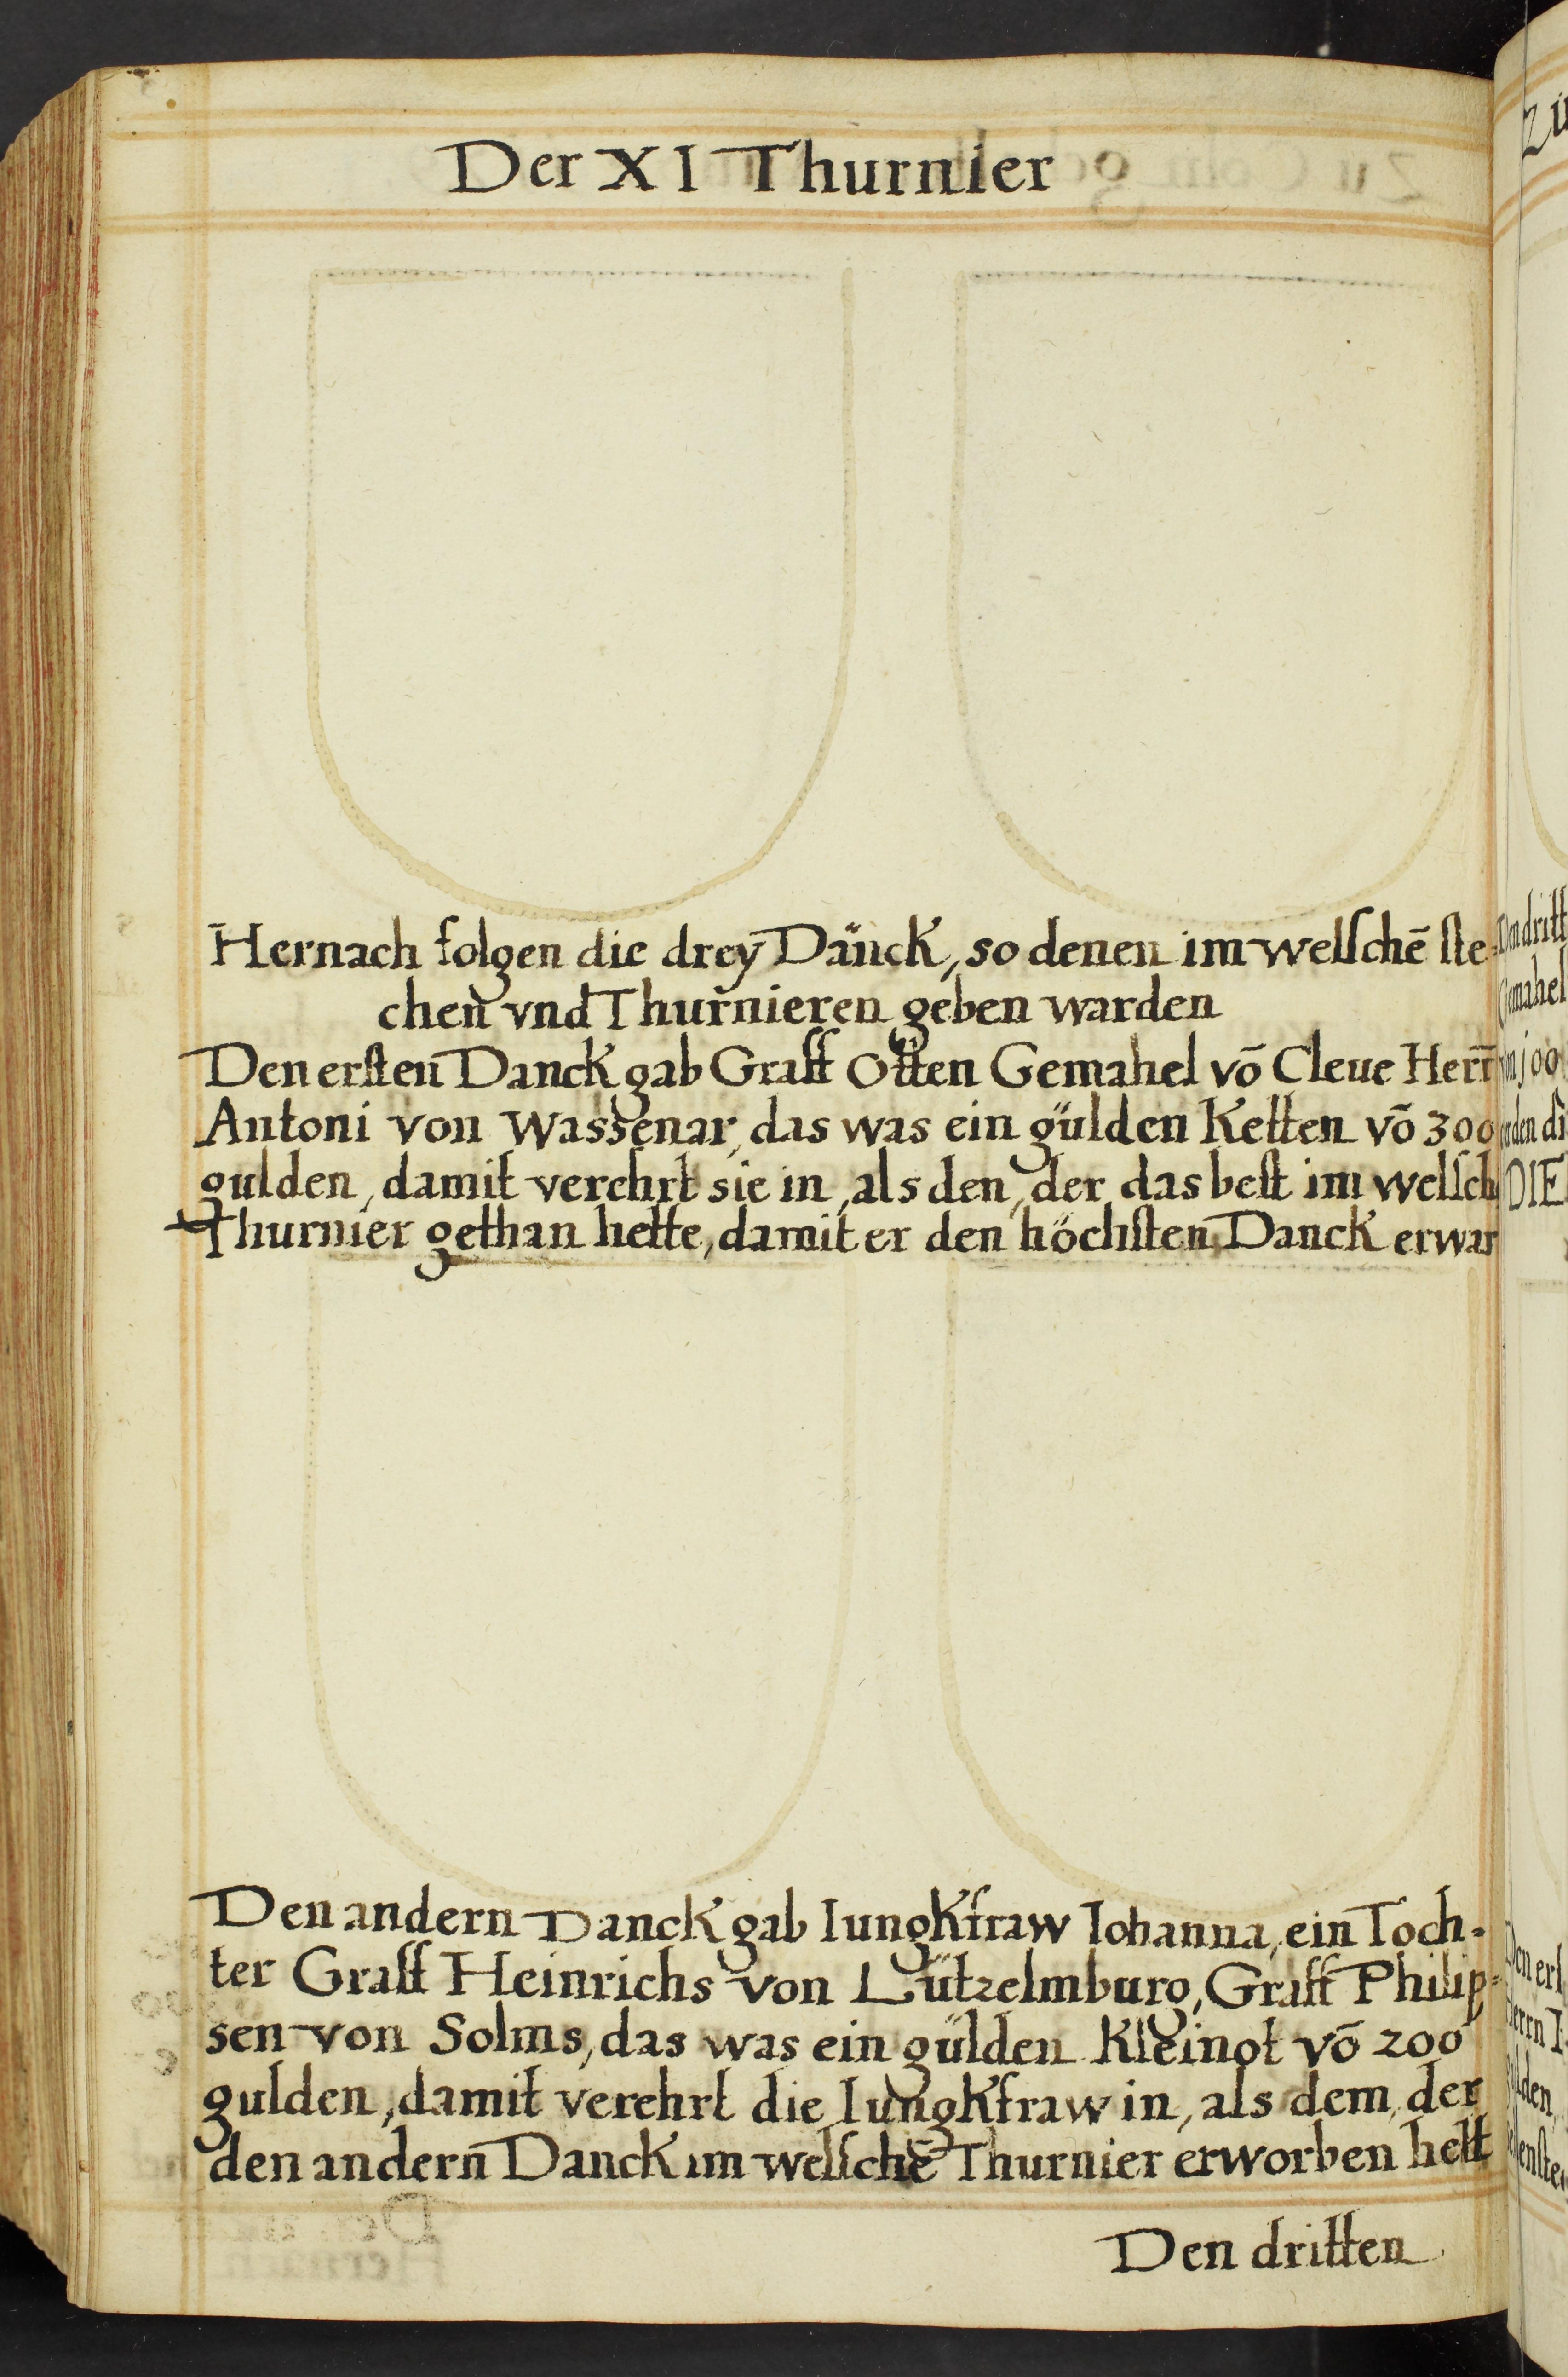 Der XI Thurnier
Hernach folgen die drey Dänck, so denen im welſchē ſte-
chen vnd Thurnieren geben warden
Den erſten Danck gab Graff Otten Gemahel vō Cleue Herr̄
Antoni von Wassenar, das was ein gülden Ketten vō 300
gulden, damit verehrt sie in, als den, der das beſt im welſch
Thurnier gethan hette, damit er den höchſten Danck erwar
Den andern Danck gab Iungkfraw Iohanna, ein Toch-
ter Graff Heinrichs von Lützelmburg, Graff Philip-
sen von Solms, das was ein gülden Kleinot vō 200
gulden, damit verehrt die Iungkfraw in, als dem, der
den andern Danck im welſchē Thurnier erworben hett
Den dritten
Den dritt
Gemahel
von 100
DIE